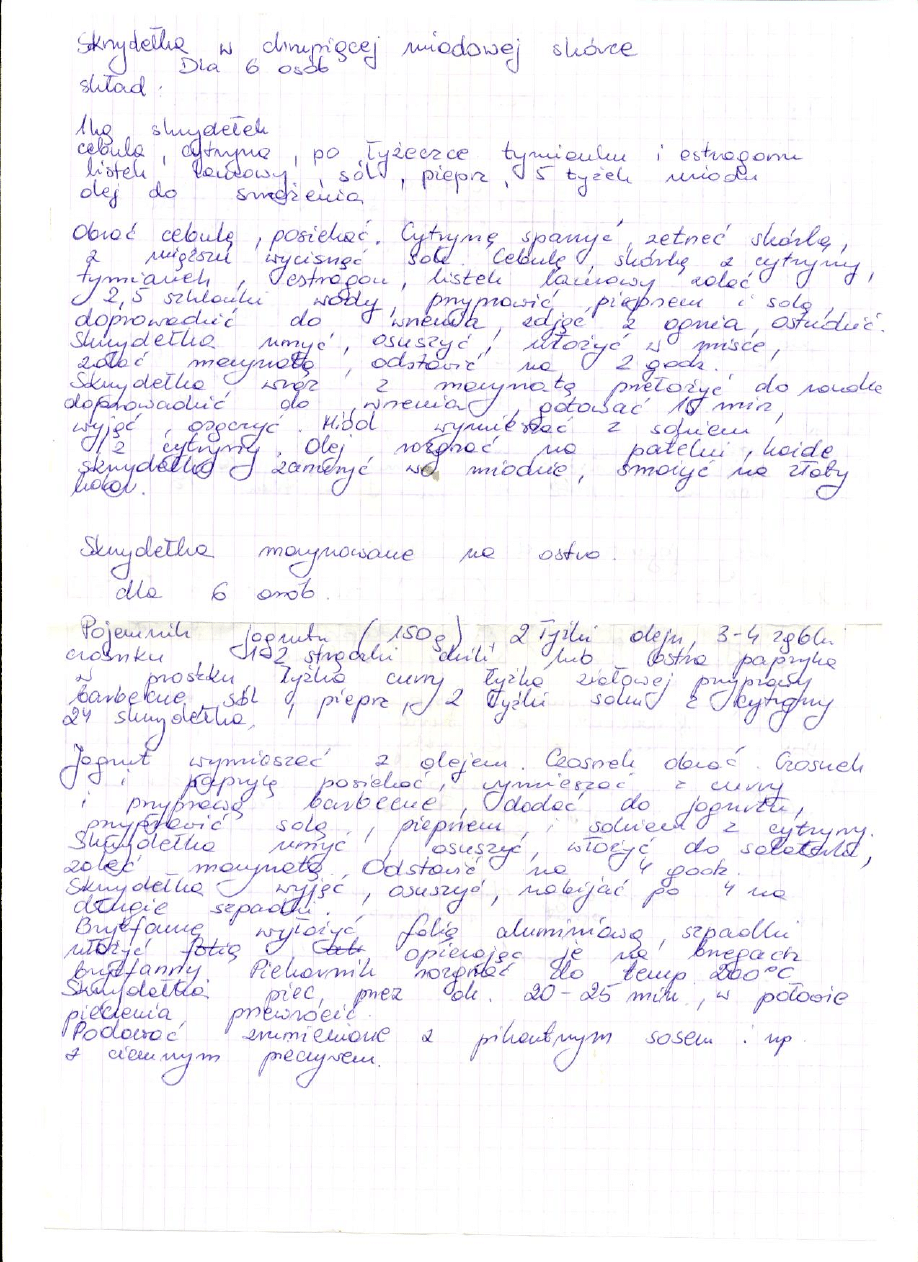 Skrzydełka w chrupiącej miodowej skórce
Dla 6 osób
skład:
1kg skrzydełek
cebula, cytryna, po łyżeczce tymianku i estragonu
listek laurowy, sól, pieprz, 5 łyżek miodu
olej do smażenia
Obrać cebulę, posiekać. Cytrynę sparzyć, zetrzeć skórkę,
z miąższu wycisnąć sok. Cebulę, skórkę z cytryny,
tymianek, estragon, listek laurowy zalać
2,5 szklanki wody, przyprawić pieprzem i solą,
doprowadzić do wrzenia, zdjąć z ognia, ostudzić.
Skrzydełka umyć, osuszyć, ułożyć w misce,
zalać marynatą, odstawić na 2 godz.
Skrzydełka wraz z marynatą przełożyć do rondla
doprowadzić do wrzenia, gotować 10 min,
wyjąć, osączyć. Miód wymieszać z sokiem
z cytryny. Olej rozgrzać na patelni, każde
skrzydełko zamoczyć w miodzie, smażyć na złoty
kolor.
Skrzydełka marynowane na ostro.
dla 6 osób.
Pojemnik jogurtu (150g), 2 łyżki oleju, 3-4 ząbki
czosnku 1-2 strączki chili lub ostra papryka
w proszku, łyżka curry łyżka ziołowej przyprawy
barbecue, sól, pieprz, 2 łyżki soku z cytryny
24 skrzydełka,
Jogurt wymieszać z olejem. Czosnek obrać. Czosnek
i paprykę posiekać, wymieszać z curry
i przyprawą barbecue, dodać do jogurtu,
przyprawić solą, pieprzem, i sokiem z cytryny.
Skrzydełka umyć, osuszyć, włożyć do salaterki,
zalać marynatą. Odstawić na 4 godz.
Skrzydełka wyjąć, osuszyć, nabijać po 4 na
długie szpadki.
Brytfannę wyłożyć folią aluminiową, szpadki
ułożyć opierając je na brzegach
brytfanny. Piekarnik rozgrzać do temp 200°C
Skrzydełka piec, przez ok. 20-25 min, w połowie
pieczenia przewrócić.
Podawać zrumienione z pikantnym sosem i np.
z ciemnym pieczywem.